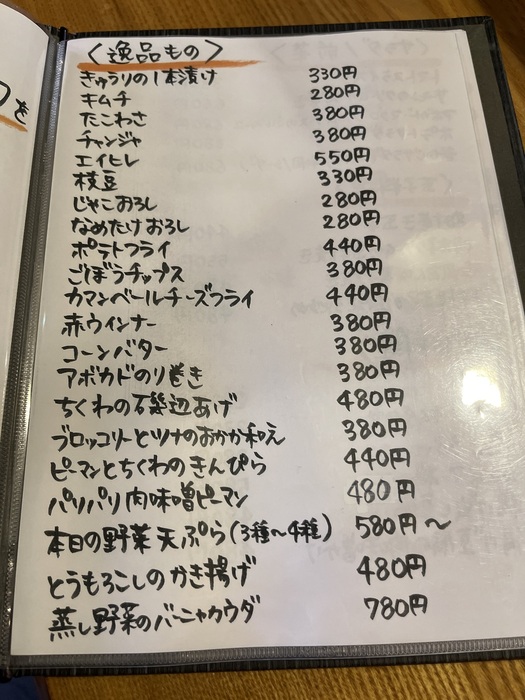 〈逸品もの〉
きゅうりの1本漬け 330円
キムチ 280円
たこわさ 380円
チャンジャ 380円
エイヒレ 550円
枝豆 330円
じゃこおろし 280円
なめたけおろし 280円
ポテトフライ 440円
ごぼうチップス 380円
カマンベールチーズフライ 440円
赤ウインナー 380円
コーンバター 380円
アボカドのり巻き 380円
ちくわの石磯辺あげ 480円
ブロッコリーとツナのおかか和え 380円
ピーマンとちくわのきんぴら 440円
パリパリ肉味噌ピーマン 480円
本日の野菜天ぷら(3種〜4種) 580円〜
とうもろこしのかき揚げ 480円
蒸し野菜のバーニャカウダ 780円
を